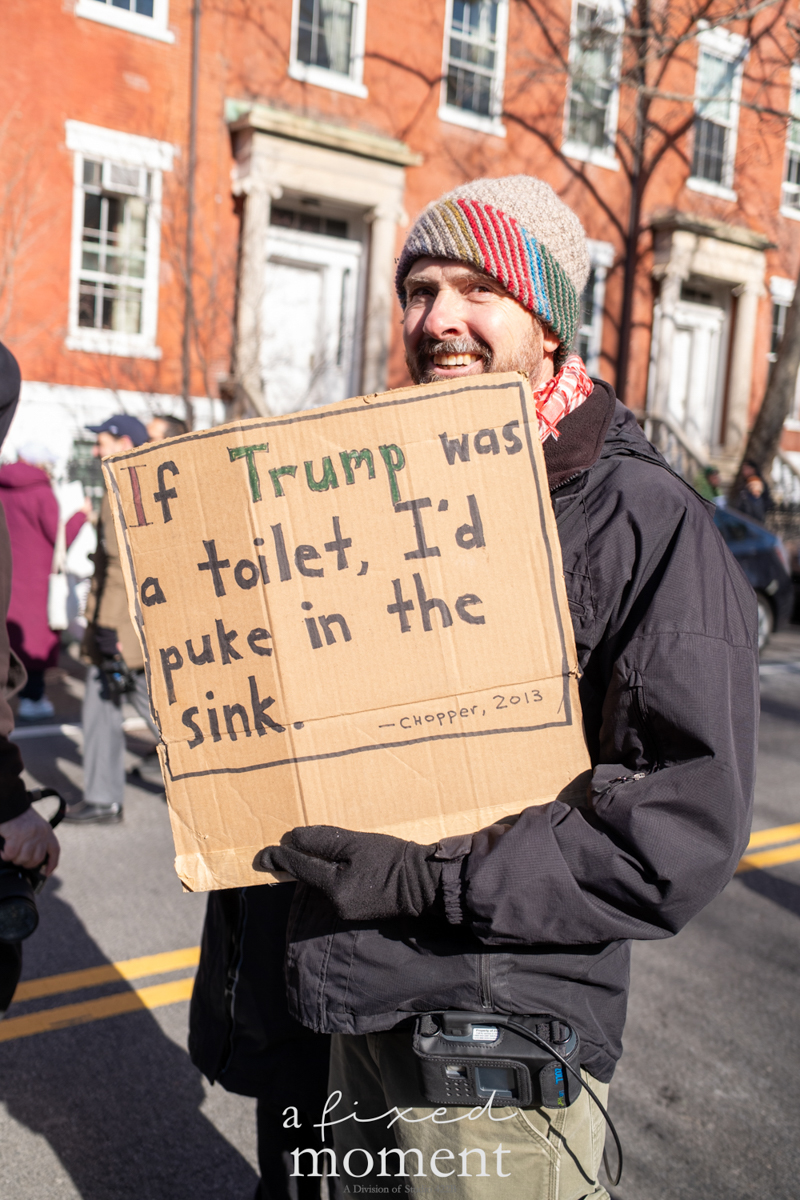 If Trump was
a toilet, I'd
puke in the
sink.
—CHOPPER, 2013
a fixed
moment
A Division of